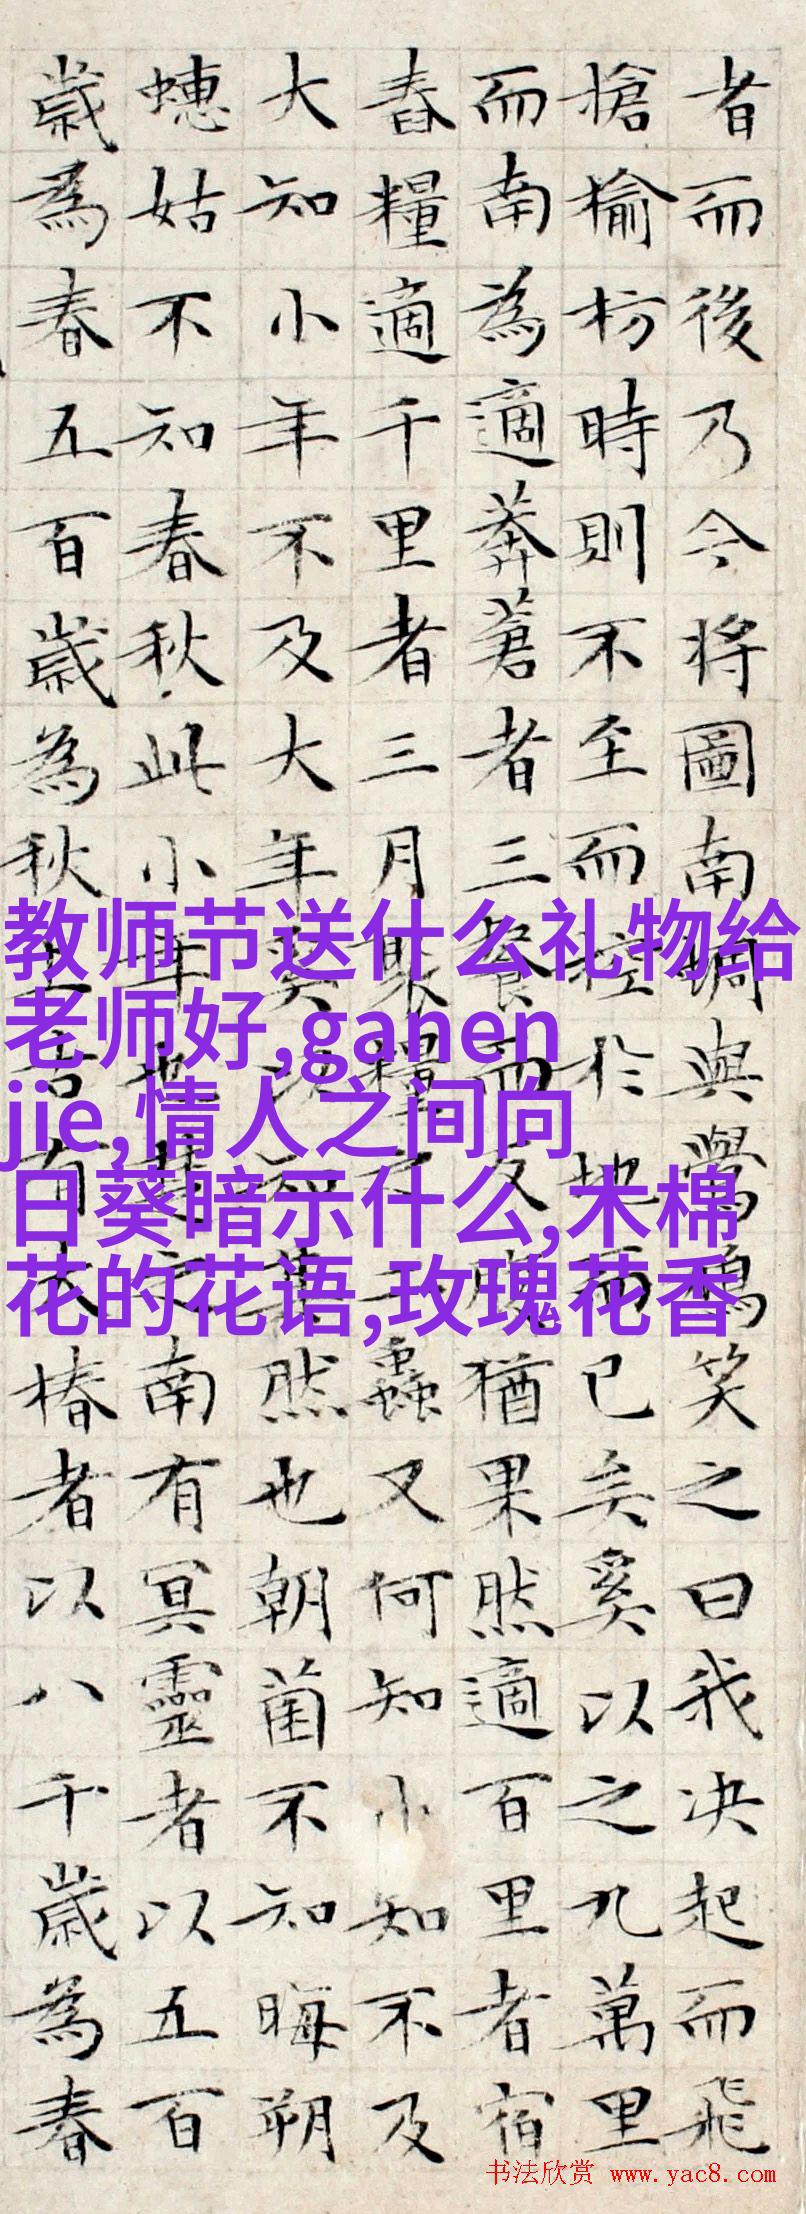 者而後乃今將圖南蜩與鷽鳩笑之曰我决起而飛
搶榆枋時則不至而控於地而已矣奚以之九萬里
而南為適莽蒼者三餐而反腹猶果然適百里者宿
舂糧適千里者三月聚糧之二蟲又何知小知不及
大知小年不及大年奚以知其然也朝菌不知晦朔
蟪姑不知春秋此小年也楚之南有冥靈者以五百
歲為春五百歲為秋上古有大椿者以八千歲為春
教师节送什么礼物给
老师好,ganen
jie,情人之间向
日葵暗示什么,木棉
花的花语,玫瑰花香
书法欣赏 www.yac8.com